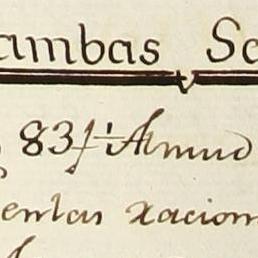 ambas Sa
83 1/2 Almud
entas racion